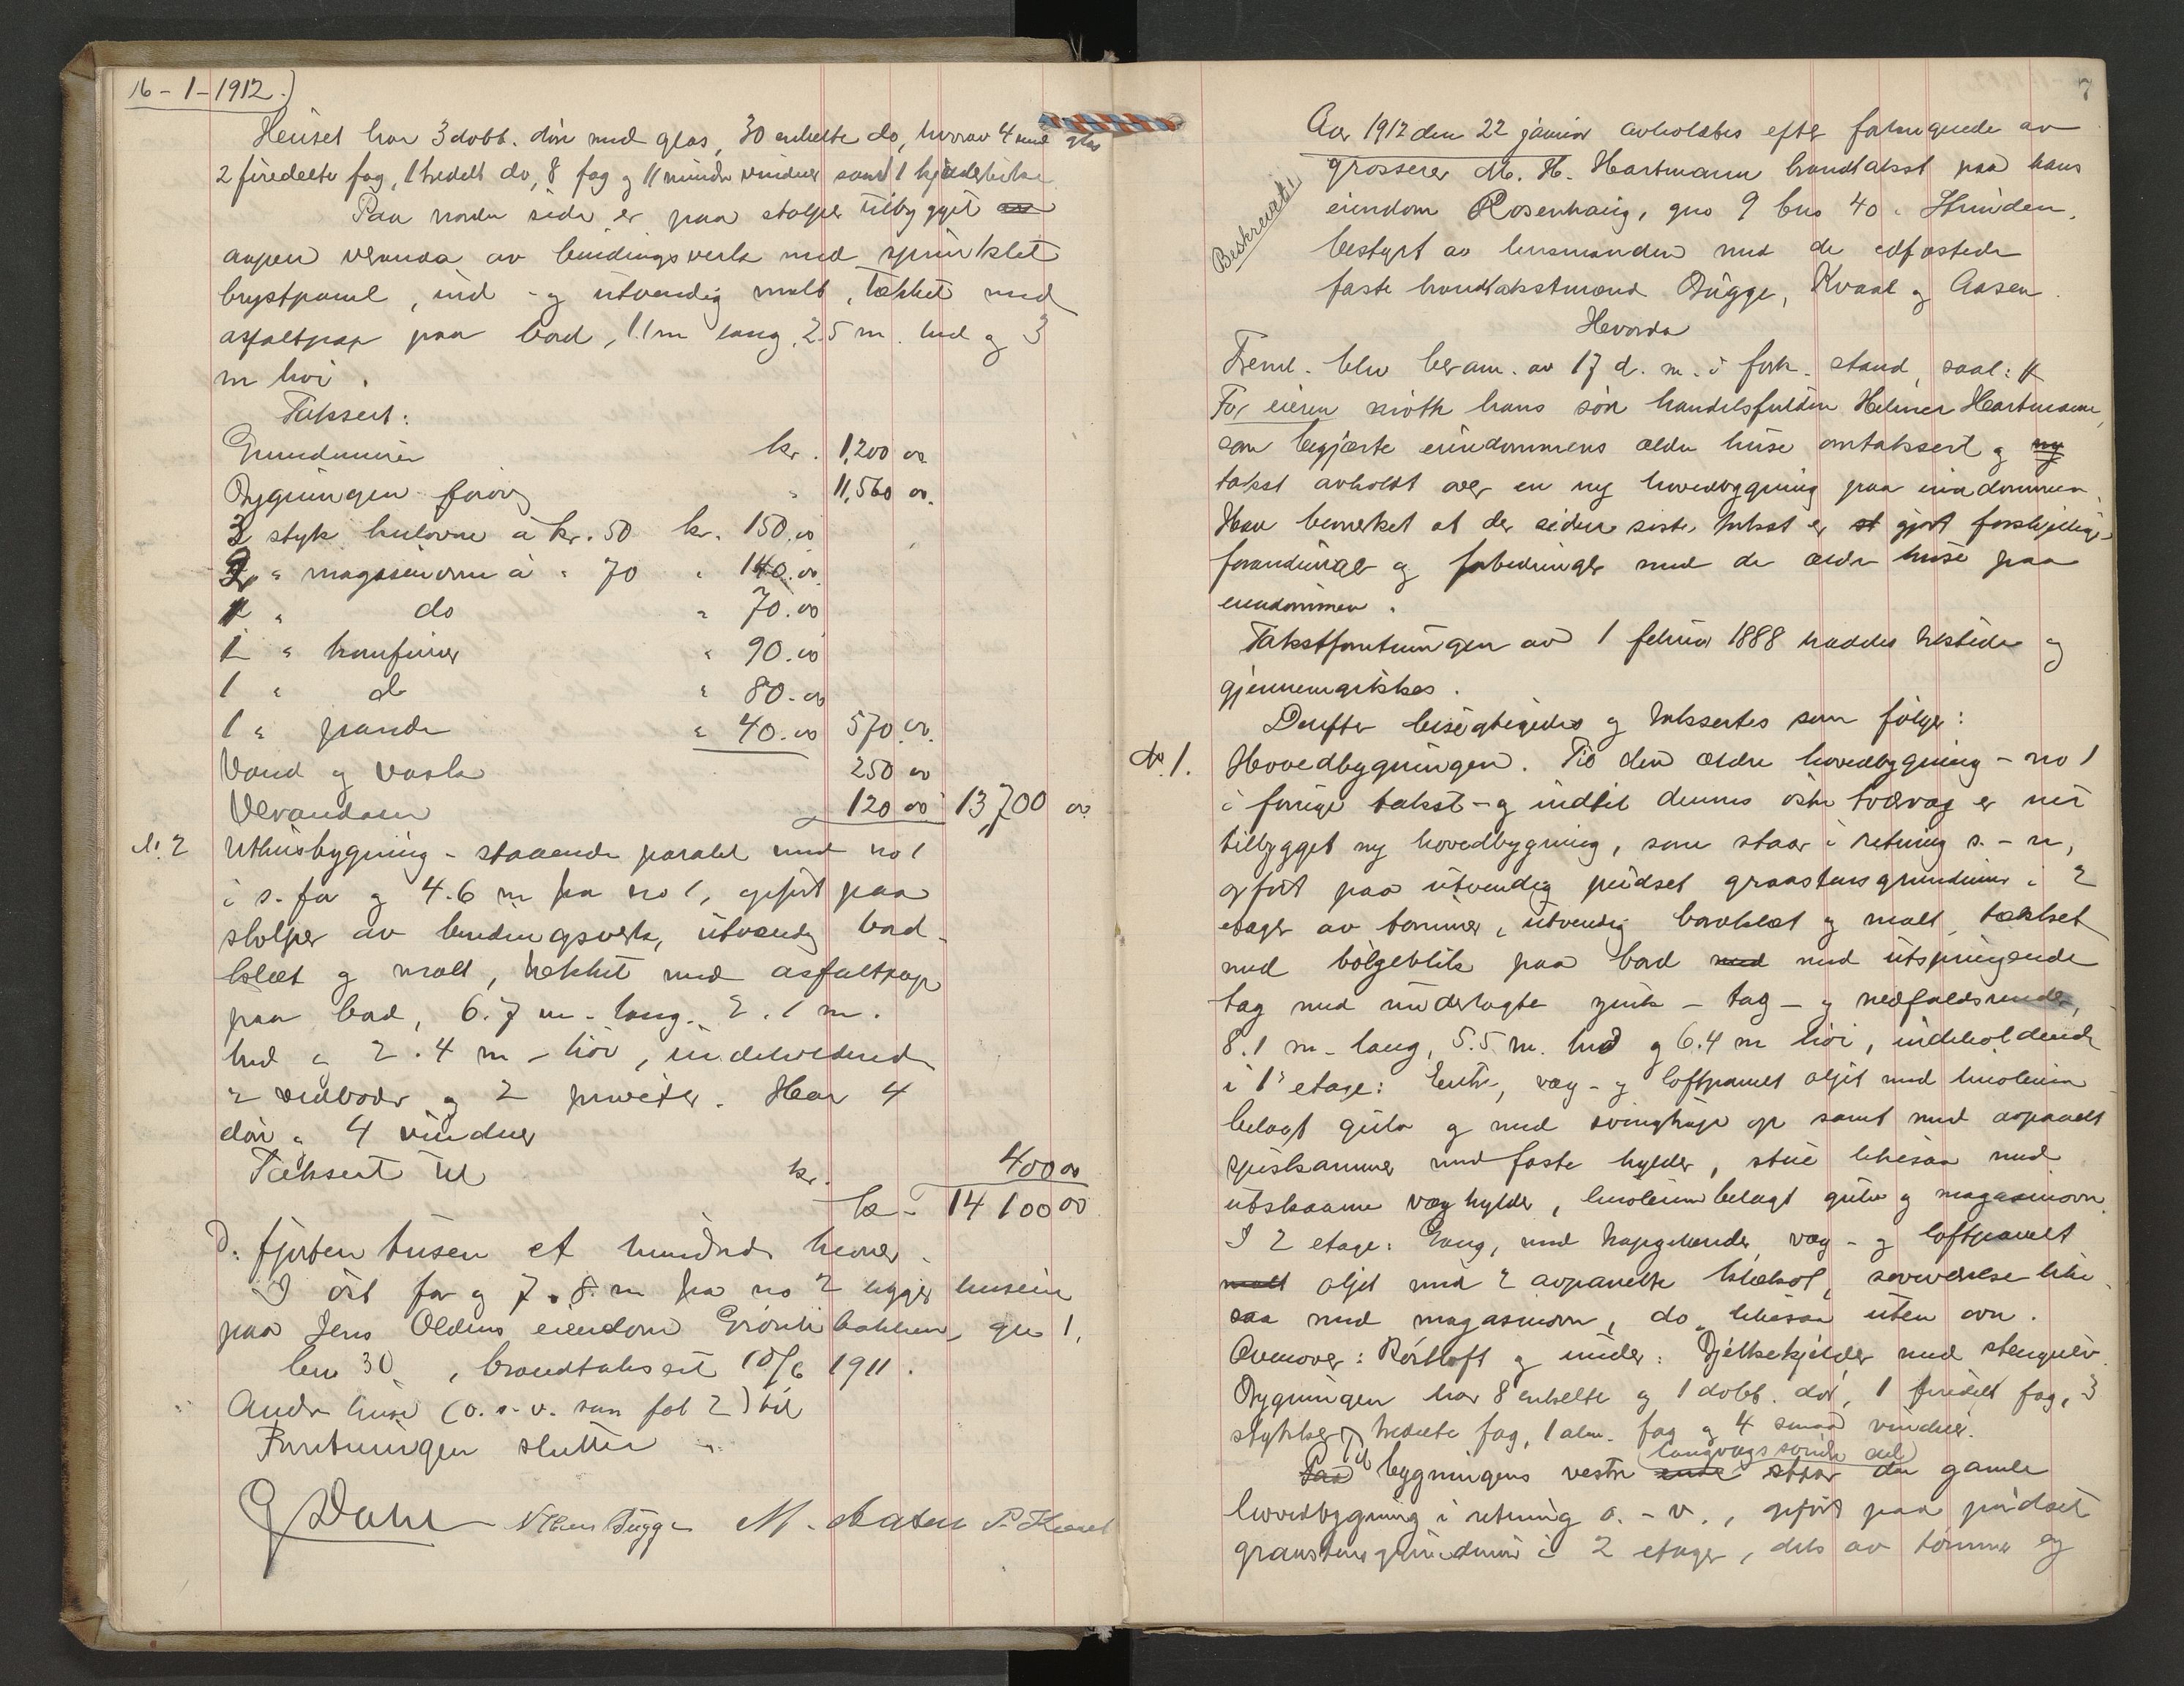 16-1-1912.)
Huset har 3 dobb. dör med glas, 30 enkelte do, hvorav 4 med glas
2 firedelte fag, 1 tredelt do, 8 fag og 11 mindre vinduer samt 1
Paa nordre side er paa stolper tilbygget
aapen veranda av bindingsverk med sprinklet
brystpanel, ind- og utvendig malt, tækket med
asfaltpap paa bord, 1.1 m lang, 2.5 m. bred og 3
m höi.
Taksert:
Grundmuren kr. 1,200 00
Bygningen forövrig " 11,560 00.
3 styk kulovne à kr. 50 kr. 150.00
2 " magasinovne à " 70 " 140.00
1 " do " 70.00
1 " komfurer " 90.00
1 " do " 80.00
1 " pande " 40.00 570.00.
Vand og vask 250 00
Verandaen 120 00 13,700 00
N. 2 Uthusbygning - staaende paralel med no 1
i s. for og 4.6 m fra no 1, opfört paa
stolper av bindingsverk, utvendig bord-
klædt og malt, tækket med asfaltpap
paa bord, 6.7 m. lang. 2.1 m.
bred og 2.4 m - höi, indeholdende
2 vedboder og 2 priveter. Har 4
dör og 4 vinduer
Taksert til kr. 400 00
kr - 14 100 00
D: fjorten tusen et hundrede kroner.
I öst for og 7.8 m fra no 2 ligger husene
paa Jens Oldens eiendom Grönlibakken, gno 1,
bno 30, brandtaksert 15/6 1911.
Andre huse (o.s.v. som fol 2) til
Forretningen slutter
G Dahl N Bugge M. Aasen P. Kvaal
7
Beskrevet
Aar 1912 den 22 januar avholdtes efter forlangende av
grosserer M. H. Hartmann brandtakst paa hans
eiendom Rosenhaug, gno 9 bno 40 i Strinden,
bestyrt av lensmanden med de edfæstede
faste brandtakstmænd Bugge, Kvaal og Aasen.
Hvorda
Freml. blev beram. av 17 d. m. i fork. stand, saal:
For eieren mötte hans sön handelsfuldm Helmer Hartmann,
som begjærte eiendommens ældre huse omtaksert og ny
takst avholdt over en ny hovedbygning paa eiendommen.
Han bemerket at der siden siste takst er gjort forskjellige
forandringer og forbedringer med de ældre huse paa
eiendommen.
Takstforretningen av 1 februar 1888 haddes tilstede og
gjennemgikkes.
Derefter besigtigedes og taksertes som följer:
No. 1. Hovedbygningen. Til den ældre hovedbygning - no 1
i forrige takst - og indtil dennes östre tværvæg er nu
tilbygget ny hovedbygning, som staar i retning s. - n,
opfört paa utvendig pudset graastensgrundmur i 2
etager av tömmer, utvendig bordklædt og malt, tækket
med bölgeblik paa bord med med utspringende
tag med underlagte zink - tag - og nedfaldsrender,
8.1 m. lang, 5.5 m. bred og 6.4 m höi, indeholdende
i 1' etage: Entré, væg- og loftpanelt oljet med linoleum
belagt gulv og med svingtrap op samt med avpanelt
spiskammer med faste hylder, stue likesaa med
utskaarne væghylder, linoleumbelagt gulv og magasinovn.
I 2 etage: Gang, med trapgelænder, væg- og loftpanelt
malt oljet med 2 avpanelte klækot, soveværelse like
saa med magasinovn, do. likesaa uten ovn.
Ovenover: Röstloft og under: Bjelkekjelder med stengulv.
Bygningen har 8 enkelte og 1 dobb. dör, 1 firedelt fag, 3
stykker tredelte fag, 1 alm. fag og 4 smaa vinduer.
Paa Til bygningens vestre ende (langvægs söndre del) stöter den gamle
hovedbygning i retning ö. - v., opfört paa pudset
graastens grundmur i 2 etager, dels av tömmer og